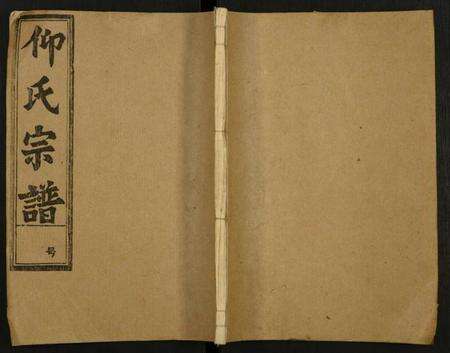 仰氏宗譜
号